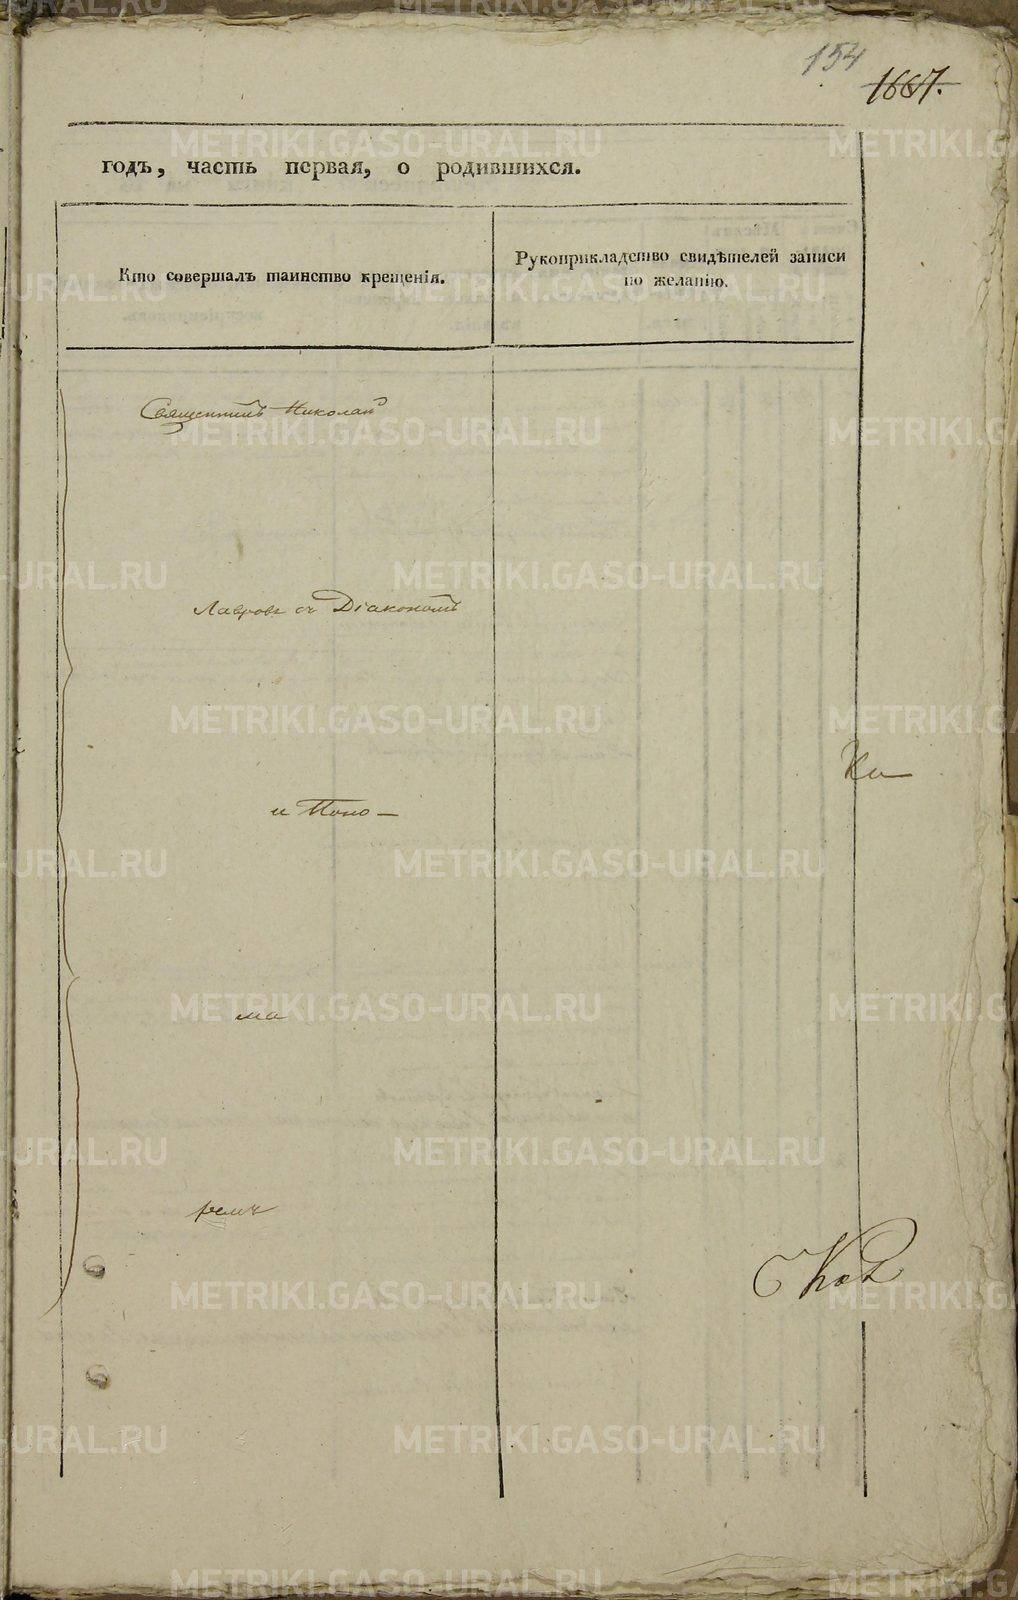 154
1667.
годъ, часть первая, о родившихся.
Кто совершалъ таинство крещенія.
Рукоприкладство свидѣтелей записи
по желанію.
Священникъ Николай
Лавровъ съ Діакономъ
и Поно-
ма
ремъ
METRIKI.GASO-URAL.RU